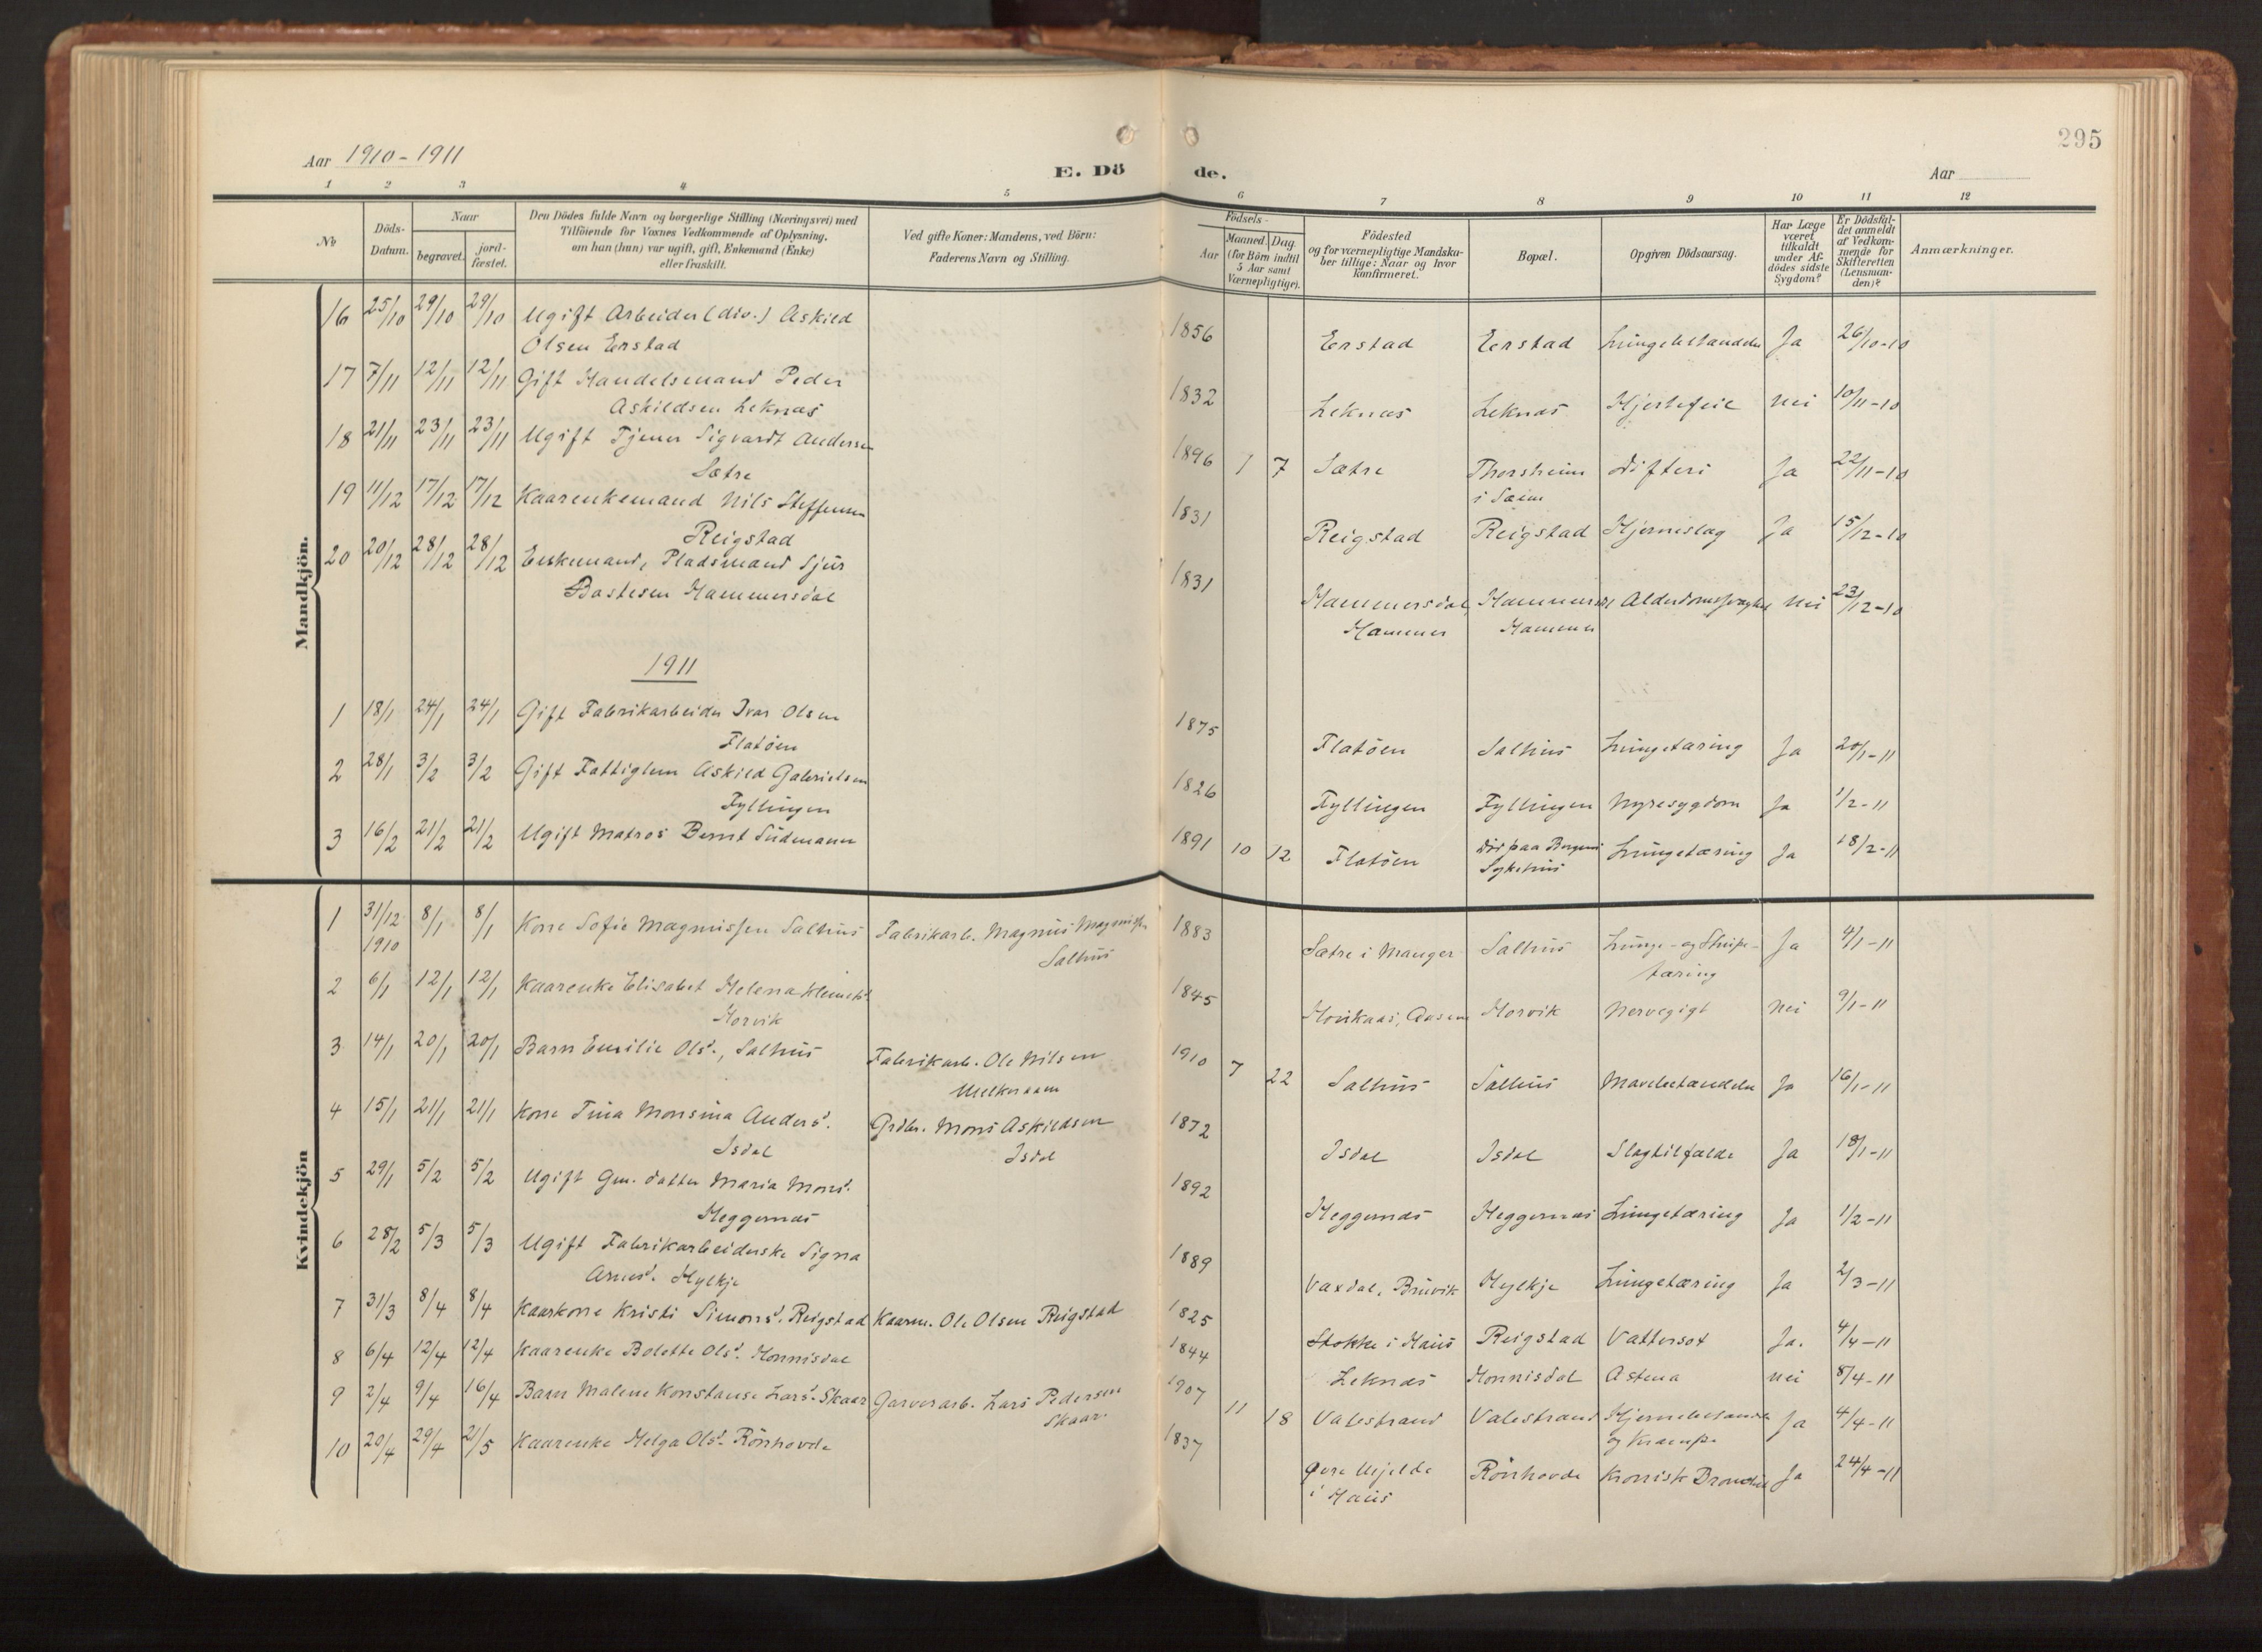 295
Aar 1910-1911
E. Dö de.
Aar
1 2 3 4 5 6 7 8 9 10 11 12
No
Döds-Datum.
Naar
begravet. jord-fæstet.
Den Dödes fulde Navn og borgerlige Stilling (Næringsvei) med
Tilföiende for Voxnes Vedkommende af Oplysning,
om han (hun) var ugift, gift, Enkemand (Enke)
eller fraskilt.
Ved gifte Koner: Mandens, ved Börn:
Faderens Navn og Stilling.
Födsels-
Aar Maaned. Dag.
(for Börn indtil
5 Aar samt
Værnepligtige).
Födested
og for værnepligtige Mandska-
ber tillige: Naar og hvor
konfirmeret.
Bopæl.
Opgiven Dödsaarsag.
Har Læge
været
tilkaldt
under Af-
dödes sidste
Sygdom?
Er Dödsfal-
det anmeldt
af Vedkom-
mende for
Skifteretten
(Lensman-
den)?
Anmærkninger.
Mandkjön.
16 25/10 29/10 29/10 Ugift Arbeider (div.) Askild 1856 Erstad Erstad Lungebetændelse Ja 26/10-10
Olsen Erstad
17 7/11 12/11 12/11 Gift Handelsmand Peder 1832 Leknæs Leknæs Hjertefeil Nei 10/11-10
Askildsen Leknæs
18 21/11 23/11 23/11 Ugift Tjener Sigvardt Andersen 1896 1 7 Sætre Thorsheim Difteri Ja 22/11-10
Sætre i Sæim
19 11/12 17/12 17/12 Kaarenkemand Nils Steffensen 1831 Reigstad Reigstad Hjerneslag Ja 15/12-10
Reigstad
20 20/12 28/12 28/12 Enkemand, Pladsmand Sjur 1831 Hammersdal, Hammersdl Alderdomssvaghed Nei 23/12-10
Bastesen Hammersdal Hammer Hammer
1911
1 18/1 24/1 24/1 Gift Fabrikarbeider Ivar Olsen 1875 Flatöen Salhus Lungetæring Ja 20/1-11
Flatöen
2 28/1 3/2 3/2 Gift Fattiglem Askild Gabrielsen 1826 Fyllingen Fyllingen Nyresygdom Ja 1/2-11
Fyllingen
3 16/2 21/2 21/2 Ugift Matros Bernt Südmann 1891 10 12 Flatöen Död paa Bergens Lungetæring Ja 18/2-11
Sykehus
Kvindekjön
1 31/12 8/1 8/1 Kone Sofie Magnussen Salhus Fabrikarb. Magnus Magnussen 1883 Sætre i Manger Salhus Lunge- og Strupe- Ja 4/1-11
1910 Salhus tæring
2 6/1 12/1 12/1 Kaarenke Elisabet Helena Klemetsd. 1845 Aasane Morvik Nervegigt Nei 9/1-11
Morvik
3 14/1 20/1 20/1 Barn Emilie Olsd., Salhus Fabrikarb. Ole Nilsen 1910 7 22 Salhus Salhus Mavebetændelse Ja 16/1-11
Melkeraaen
4 15/1 21/1 21/1 Kone Tina Monsina Andersd. Grdbr. Mons Askildsen 1872 Isdal Isdal Slagtilfælde Ja 18/1-11
Isdal Isdal
5 29/1 5/2 5/2 Ugift Gm. datter Maria Monsd. 1892 Heggernæs Heggernæs Lungetæring Ja 1/2-11
Heggernæs
6 28/2 5/3 5/3 Ugift Fabrikarbeiderske Signa 1889 Vaxdal, Bruvik Hylkje Lungetæring Ja 2/3-11
Arnesd. Hylkje
7 31/3 8/4 8/4 Kaarkone Kristi Simonsd. Reigstad Kaarm. Ole Olsen Reigstad 1825 Stokke i Haus Reigstad Vattersot Ja. 4/4-11
8 6/4 12/4 12/4 Kaarenke Bolette Olsd. Monnisdal 1844 Leknæs Monnisdal Astma Nei 8/4-11
9 2/4 9/4 16/4 Barn Malene Konstanse Larsd. Skaar Garverarb. Lars Pedersen 1907 11 18 Valestrand Valestrand Hjernebetændelse Ja 4/4-11
Skaar og Krampe
10 20/4 29/4 21/5 Kaarenke Helga Olsd. Rönhovde 1837 Övre Mjelde Rönhovde Kronisk Bronchit Ja 24/4-11
i Haus